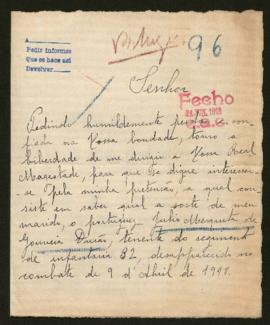 96
A
Pedir informes
Que se hace así
Devolver
Senhor
Fecho
C.S.C.
Pedindo humildemente perdão e con-
fiada na Vossa bondade, tomo a
liberdade de me dirigir a Vossa Real
Magestade, para que Se digne interessar-
se pela minha pretensão, a qual con-
siste em saber qual a sorte de meu
marido, o portuguez, Julio
Gouveia Durão, tenente do regimento
de infantaria 32, desapparecido no
combate de 9 d'Abril de 1918.